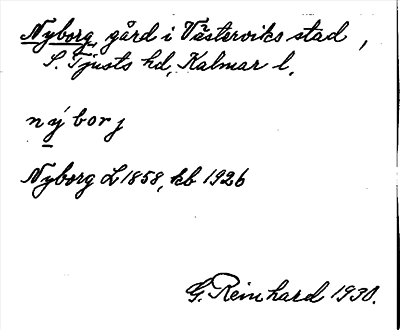 Nyborg, gård i Västerviks stad,
S. Tjusts hd, Kalmar l.
nýborj
Nyborg L 1858, kb 1926
G. Reinhard 1930.